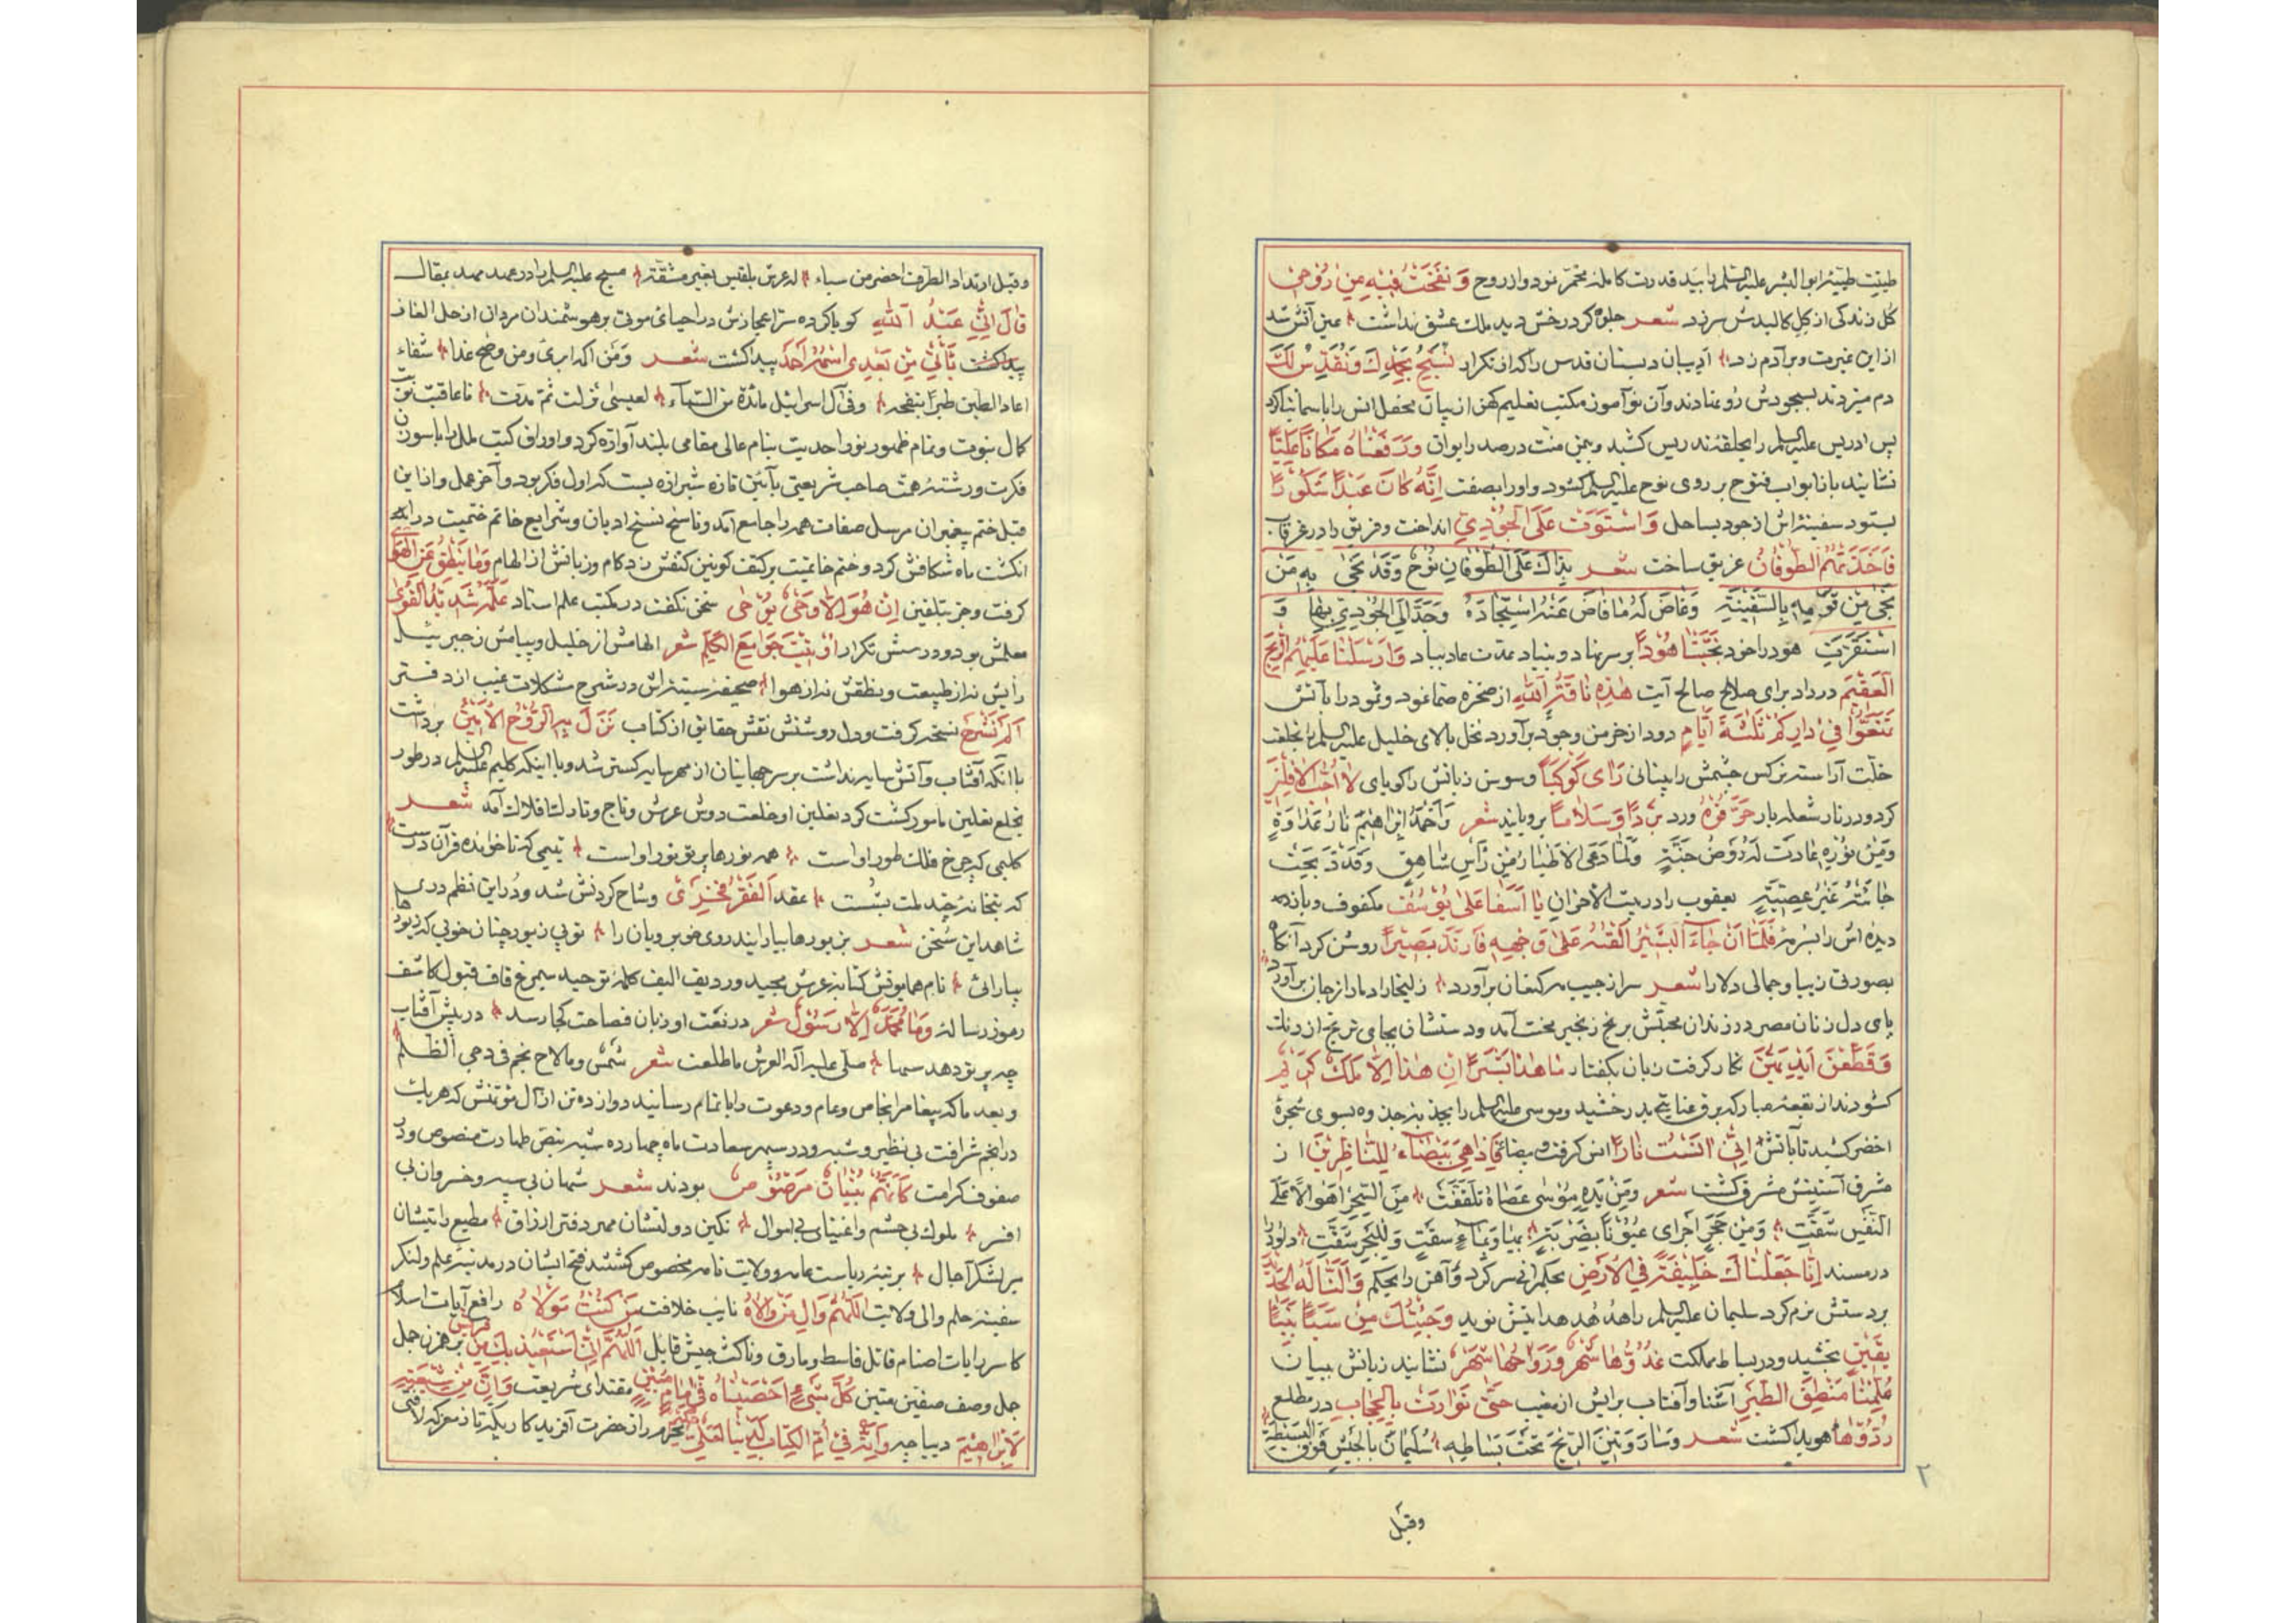 طینت طیبهٔ ابوالبشر علیه السلم را بید قدرت کامله مخمر نمود و از روح وَ نَفَخْتُ فیهِ مِنْ رُوحی
کل زندگی از کل کالبدش سر زد شعر جلوهٔ کرد رخش دید ملک عشق نداشت عین آتش شد
از این غیرت و بر آدم زد ادیبان دبستان قدس را که از تکرار نُسَبِّحُ بِحَمْدِكَ وَنُقَدِّسُ لَكَ
دم میزدند بسجودش رو نمادند و آن نوآموز مکتب تعلیم کهن از بیان محفل انس را باسما
پس ادریس علیه السلم را بحلقهٔ تدریس کشید و بمن منت در صدر ایوان وَرَفَعْنَاهُ مَكَانًا عَلِيًّا
نشانید بازابواب فتوح بر روی نوح علیه السلم کشود و او را بصفت اِنَّهُ كَانَ عَبْدًا شَكُورًا
بستود سفینه‌اش از جود بساحل وَاسْتَوَتْ عَلَى الْجُودِيِّ انداخت و فریق را در غرقاب
فَاَخَذَهُمُ الطُّوفَانُ غریق ساخت شعر بِذَاكَ عَلَى الطُّوفَانِ نُوحٌ وَقَدْ نَجَى بِهِ مَنْ
نَجَى مِنْ قَوْمِهِ بِالسَّفِينَةِ وَغَاضَ لَهُ مَا فَاضَ عَنْهُ اسْتِجَادَهُ وَجَدَّ اِلَى الْجُودِيِّ بِهَا وَ
اسْتَقَرَّتِ هود را خود نَجَّيْنَا هُودًا بر سر نهاد و بنیاد عمدت عاد بباد وَاَرْسَلْنَا عَلَيْهِمُ الرِّيحَ
الْعَقِيمَ در داد برای صلاح صالح آیت هٰذِهِ نَاقَةُ اللهِ از صخرهٔ صما نمود و ثمود را بآتش
تَمَتَّعُوا فِي دَارِكُمْ ثَلٰثَةَ اَيَّامٍ دود از خرمن وجود برآورد نخل بالای خلیل علیه السلم را بخلعت
خلت آراسته نرکس چشمش را بینائی رَاى كَوْكَبًا و سوسن زبانش را کویای لَا اُحِبُّ الْآفِلِينَ
کرد و در نار شعله بار حَرِّقُوهُ ورد بَرْدًا وَسَلَامًا برویانید شعر وَاَخْمَدَ اِبْرَاهِيمُ نَارَ عَدَاوَةٍ
وَمِنْ نُورِهِ عَادَتْ لَهُ رَوْضَ جَنَّةٍ وَلَمَّا دَعَى الْاَطْيَارَ مِنْ رَأْسِ شَاهِقٍ وَقَدْ ذُبِحَتْ
جَائَتْهُ غَيْرَ عَصِيَّةٍ یعقوب را در بیت الاحزان يَا اَسَفَا عَلَى يُوسُفَ مکفوف و بازه
دیده‌اش را بسرمهٔ فَلَمَّا اَنْ جَاءَ الْبَشِيرُ اَلْقٰهُ عَلٰى وَجْهِهِ فَارْتَدَّ بَصِيرًا روشن کرد آنکاه
بصورتی زیبا و جمالی دلارا شعر سر از جیب مه کنعان برآورد زلیخا را دمار از جان برآورد
پای دل زنان مصر در زندان محبتش برنج زنجیر سخت آمد و دستشان بجای ترنج از رنك
وَقَطَّعْنَ اَيْدِيَهُنَّ نگار کرفت زبان بکفتار مَا هٰذَا بَشَرًا اِنْ هٰذَا اِلَّا مَلَكٌ كَرِيمٌ
کشودند از بقعهٔ مبارکه برق عنایتی بدرخشید و موسی علیه السلم را بجذبهٔ جذوه بسوی شجرهٔ
اخضر کشید تا بآتش اِنِّي اٰنَسْتُ نَارًا انس کرفت و بیضای فَاِذَا هِيَ بَيْضَاءُ لِلنَّاظِرِينَ از
مشرق آستینش مشرق کشت شعر وَمِنْ يَدِهِ مُوسٰى عَصَاهُ تَلَقَّفَتْ مِنَ السِّحْرِ اَهْوَالًا عَلَى
النَّفْسِ شَقَّتِ وَمِنْ حَجَرٍ اَجْرٰى عُيُونًا بِضَرْبَةٍ بِهَا وَمَاءٍ سُقَتْ وَلِلْبَحْرِ شَقَّتِ داود را
در مسند اِنَّا جَعَلْنَاكَ خَلِيفَةً فِي الْاَرْضِ بحکمرانی سر کرد و آهن را بحکم وَاَلَنَّا لَهُ الْحَدِيدَ
بر دستش نرم کرد سلیمان علیه السلم را هدهد هدایتش نوید وَجِئْتُكَ مِنْ سَبَأٍ بِنَبَأٍ
يَقِينٍ بخشید و در بساط مملکت غُدُوُّهَا شَهْرٌ وَرَوَاحُهَا شَهْرٌ نشانید زبانش ببیان
عُلِّمْنَا مَنْطِقَ الطَّيْرِ آشنا و آفتاب برایش از مغیب حَتّٰى تَوَارَتْ بِالْحِجَابِ در مطلع
رُدُّوهَا هویدا کشت شعر وَسَارَ وَمَتْنُ الرِّيحِ تَحْتَ بِسَاطِهِ سُلَيْمَانُ بِالْجَيْشِ فَوْقَ الْبَسِيطَةِ
۲
وقبل
وقبل ارتداد الطرف احضر من سباء له عرش بلقیس بغیر مشقة مسیح علیه السلم را در عهد مهد بمقال
قَالَ اِنِّي عَبْدُ اللهِ کویا کرده سر اعجازش در احیای موتی بر هوشمندان مردان از حل الغاز
پیدا کشت يَأْتِي مِنْ بَعْدِي اسْمُهُ اَحْمَدُ پیدا کشت شعر وَمَن اکمه ابرئ ومن وضح غدا شفاء
اعاد الطین طیرا بنفخه وفی آل اسرائیل مائدة من السماء لعیسی نزلت ثم مدت تا عاقبت نوبت
کمال نبوت و تمام ظهور نور احدیت بنام عالی مقامی بلند آوازه کرد و اوراق کتب ملل را باسوزن
فکرت و رشتهٔ همت صاحب شریعتی بآئین تازه شیرازه بست که اول فکر بود و آخر عمل و از این
قبل ختم پیغمبران مرسل صفات همه را جامع آمد و ناسخ نسخ ادیان و شرایع خاتم ختمیت در
انکشت ماه شکافش کرد و ختم خاتمیت بر کتف کونین کنفش زد کام و زبانش از الهام وَمَا يَنْطِقُ عَنِ الْهَوٰى
کرفت و جز بتلقین اِنْ هُوَ اِلَّا وَحْيٌ يُوحٰى سخن نکفت در مکتب علم استاد عَلَّمَهُ شَدِيدُ الْقُوٰى
معلمش بود و درسش تکرار اُوتِيتُ جَوَامِعَ الْكَلِمِ شعر الهامش از خلیل و پیامش ز جبرئیل
رأیش نه از طبیعت و نطقش نه از هوا صحیفهٔ سینه‌اش در شرح مشکلات غیب از دفتر
اَلَمْ نَشْرَحْ نسخه کرفت و دل روشنش نقش حقایق از کتاب نَزَلَ بِهِ الرُّوحُ الْاَمِينُ برداشت
با آنکه آفتاب و آتش سایه نداشت بر سر جهانیان از مهر سایه کستر شد و با اینکه کلیم علیه السلم در طور
بخلع نعلین مامور کشت کرد نعلین او خلعت دوش عرش و تاج و تارك افلاك آمد شعر
کلیمی که چرخ فلك طور او است همه نورها پرتو نور او است یتیمی که ناخوانده قرآن درست
کتبخانهٔ چند ملت بشست عقد اَلْفَقْرُ فَخْرِي وشاح کردنش شد و در این نظم دری
شاهد این سخن شعر بزیورها بیارایند روی خوبرویان را تو بی زیور چنان خوبی که زیورها
بیارائی نام همایونش کتابهٔ عرش مجید و ردیف الیف کلمهٔ توحید سیمرغ قاف قبول کاشف
رموز رسالهٔ وَمَا مُحَمَّدٌ اِلَّا رَسُولٌ شعر در نعت او زبان فصاحت کجا رسد در پیش آفتاب
چه پرتو دهد سها صلی علیه اله العرش ما طلعت شعر شمس وما لاح نجم فی دجی الظلم
و بعد ما که پیغامبر بخاص و عام و دعوت را باتمام رسانید دوازده تن از آل مؤتمنش که هریك
در انجم شرافت بی نظیر و شبیه و در سپهر سعادت ماه چهارده شبه بنص طهارت منصوص و در
صفوف کرامت كَاَنَّهُمْ بُنْيَانٌ مَرْصُوصٌ بودند شعر شهان بی سپه و خسروان بی
افسر ملوك بی حشم و اغنیای بی اموال نکین دولتشان ممهر دفتر ارزاق مطیع رایتشان
سرلشکر آجال برتبهٔ ریاست عامه و ولایت تامه مخصوص کشتند فتح ایشان در مدینهٔ علم و لنکر
سفینهٔ حلم و والی ولایت اَللّٰهُمَّ وَالِ مَنْ وَالَاهُ نایب خلافت مَنْ كُنْتُ مَوْلَاهُ رافع آیات اسلام
کاسر رایات اصنام قاتل قاسط و مارق و ناکث جیش قابل
جمل و صف صفین متین كُلَّ شَيْءٍ اَحْصَيْنَاهُ فِي اِمَامٍ مُبِينٍ مقتدای شریعت وَاِنَّ مِنْ شِيعَتِهِ
لَاِبْرَاهِيمَ دیباچهٔ وَاِنَّهُ فِي اُمِّ الْكِتَابِ لَدَيْنَا لَعَلِيٌّ حَكِيمٌ